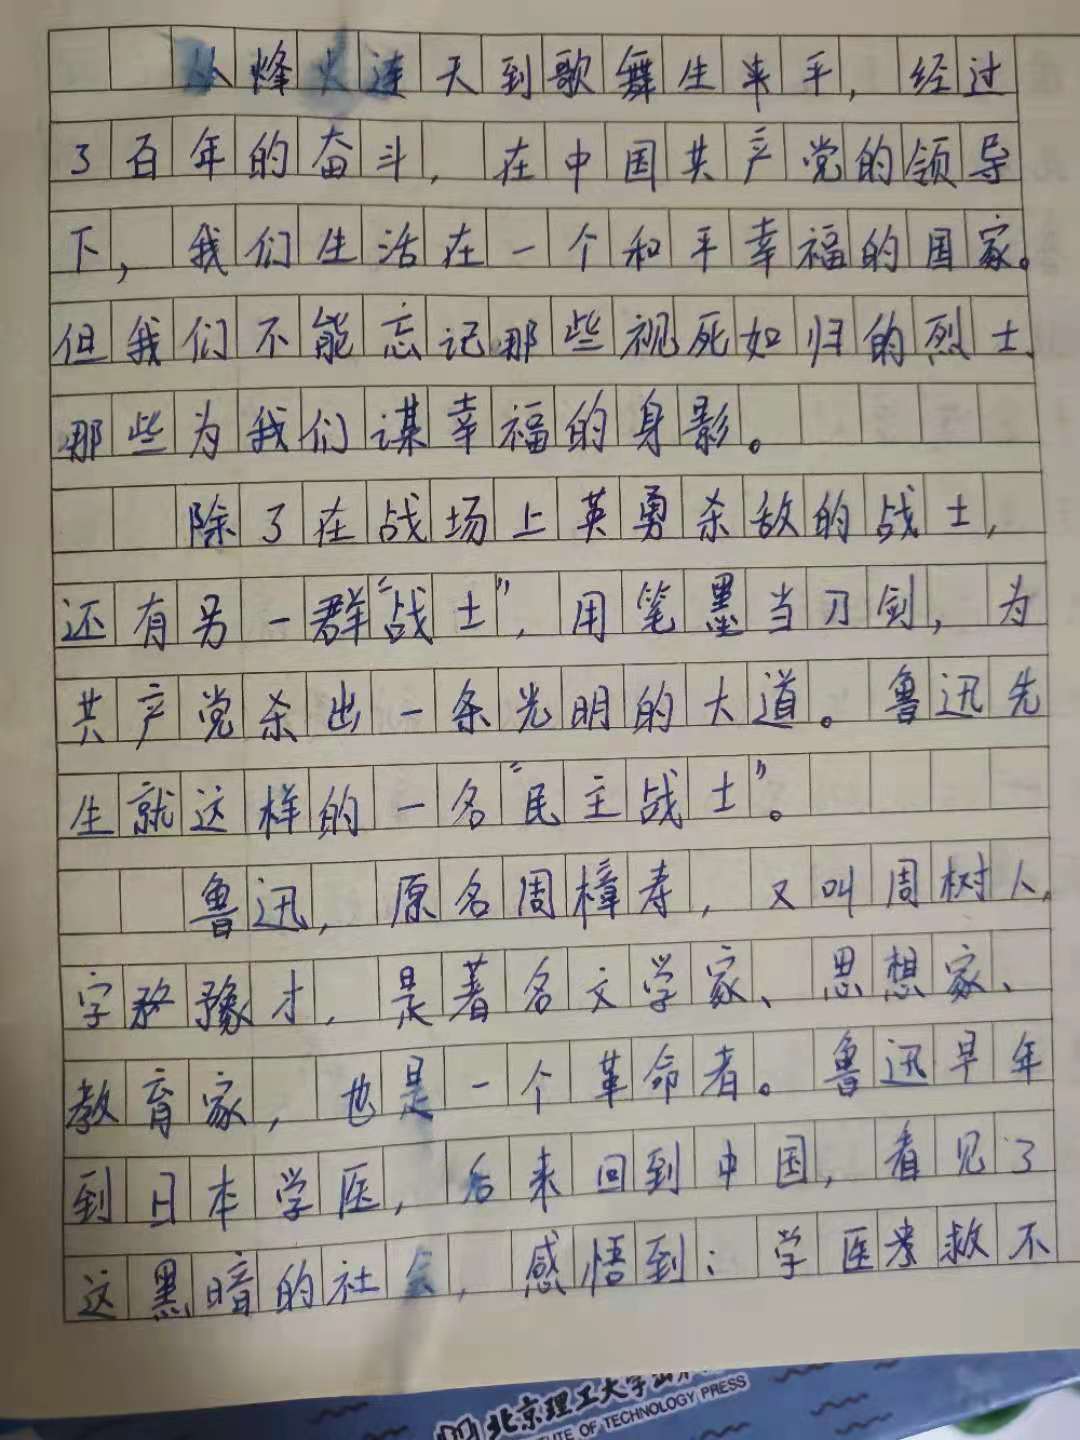 从烽火连天到歌舞生来平，经过
了百年的奋斗，在中国共产党的领导
下，我们生活在一个和平幸福的国家。
但我们不能忘记那些视死如归的烈士、
那些为我们谋幸福的身影。
除了在战场上英勇杀敌的战士，
还有另一群“战士”，用笔墨当刀剑，为
共产党杀出一条光明的大道。鲁迅先
生就这样的一名“民主战士”。
鲁迅，原名周樟寿，又叫周树人，
字豫才，是著名文学家、思想家、
教育家，也是一个革命者。鲁迅早年
到日本学医，后来回到中国，看见了
这黑暗的社会，感悟到：学医救不
北京理工大学出
TE OF TECHNOLOGY PRESS